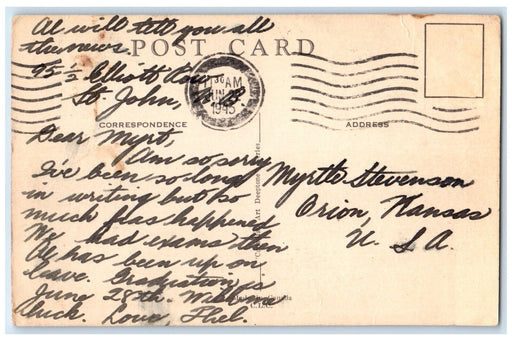 Al will tell you all
the news.
POST CARD
95 1/2 Elliott Row
St. John, N. B.
30 AM
JUN
1943
CORRESPONDENCE
ADDRESS
Dear Myrt,
Am so sorry
I've been so long
in writing but so
much has happened
We had exams then
Al has been up on
leave. Graduation is
June 28th. Will be
a luck. Love, Thel.
Myrtle Stevenson
Orion, Kansas
U. S. A.
Art Deeptone Series